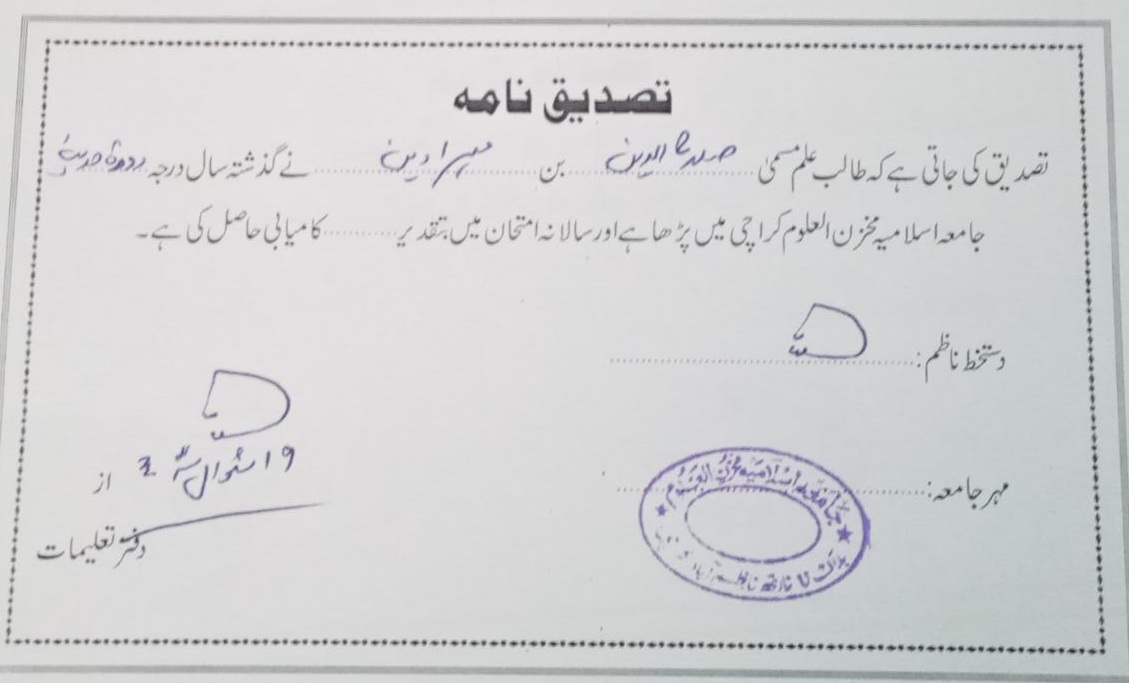 تصدیق نامہ
تصدیق کی جاتی ہے کہ طالب علم مسمیٰ ............ بن ............ نے گذشتہ سال درجہ دورۂ حدیث
جامعہ اسلامیہ مخزن العلوم کراچی میں پڑھا ہے اور سالانہ امتحان میں بتقدیر ............ کامیابی حاصل کی ہے۔
دستخط ناظم: ............
۱۹ شوال
مہر جامعہ: ............
از
دفتر تعلیمات
جامعہ اسلامیہ مخزن العلوم